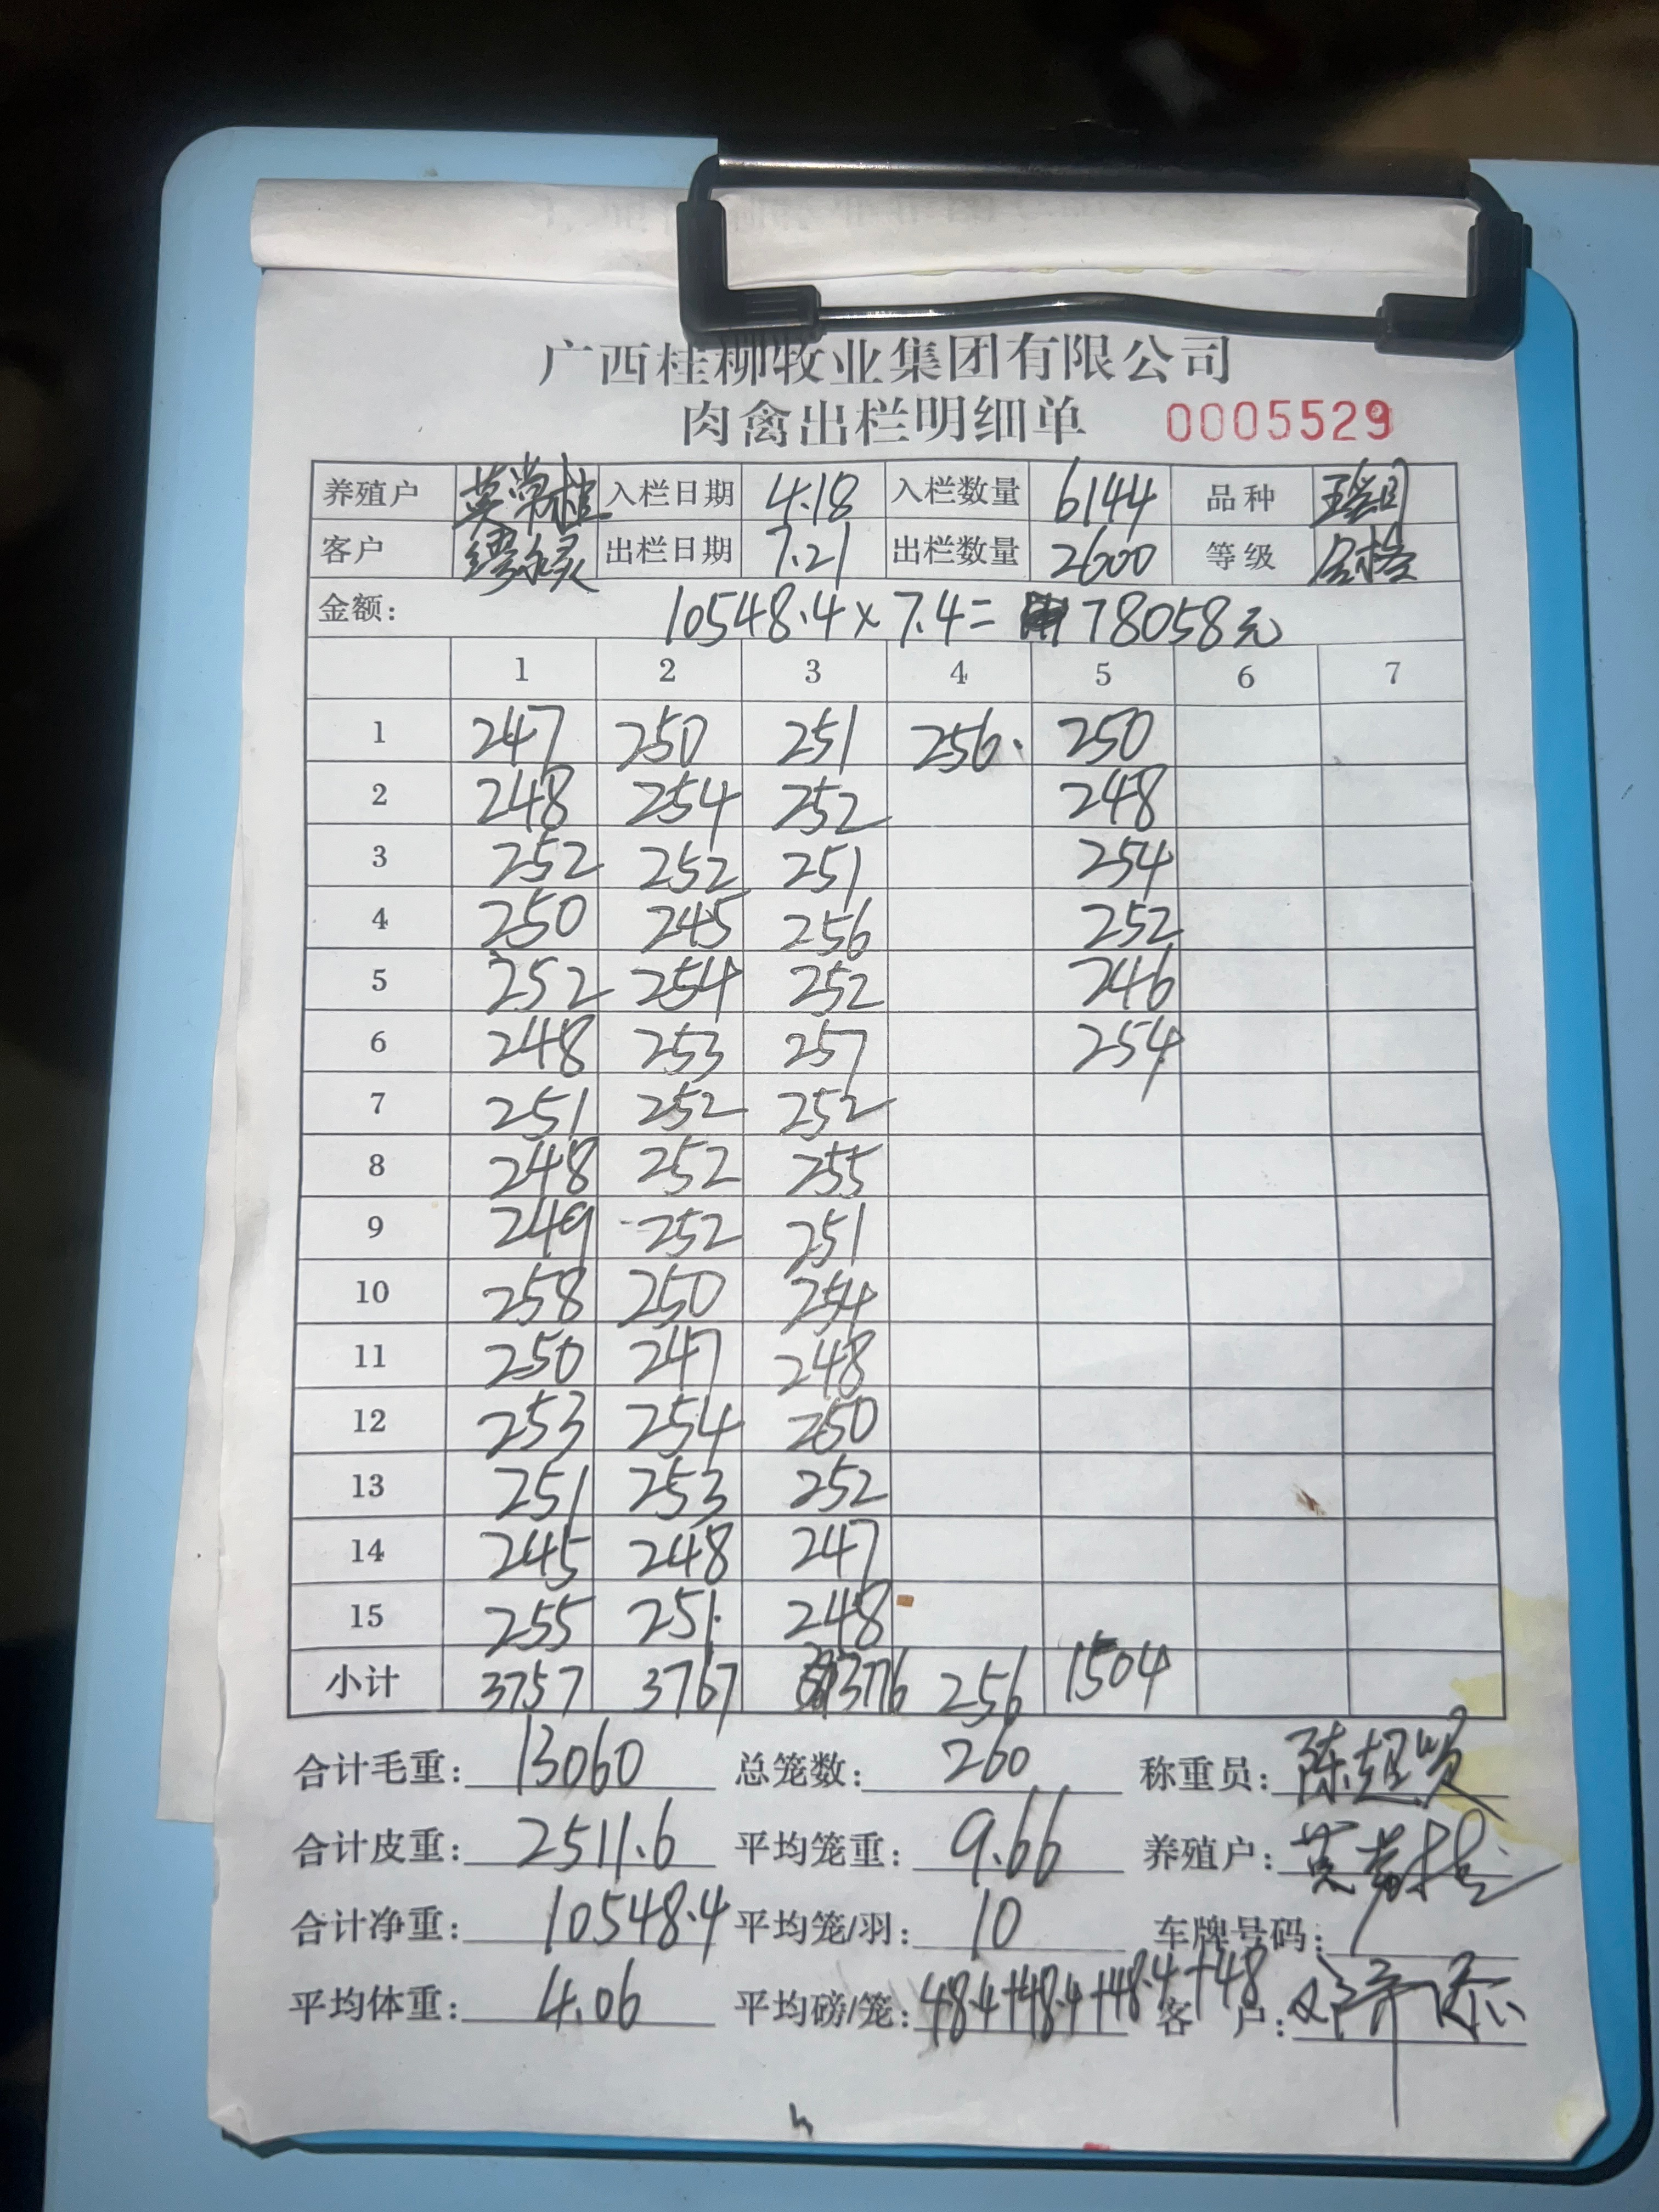 广西桂柳牧业集团有限公司
肉禽出栏明细单 0005529
养殖户 莫常桂 入栏日期 4.18 入栏数量 6144 品种
客户 出栏日期 7.21 出栏数量 2600 等级 合格
金额: 10548.4×7.4= 78058元
1 2 3 4 5 6 7
1 247 250 251 256. 250
2 248 254 252 248
3 252 252 251 254
4 250 245 256 252
5 252 254 252 246
6 248 253 257 254
7 251 252 252
8 248 252 255
9 249 -252 251
10 258 250 254
11 250 247 248
12 253 254 250
13 251 253 252
14 245 248 247
15 255 251. 248
小计 3757 3767 3776 256 1504
合计毛重: 13060 总笼数: 260 称重员:
合计皮重: 2511.6 平均笼重: 9.66 养殖户: 莫常桂
合计净重: 10548.4 平均笼/羽: 10 车牌号码:
平均体重: 4.06 平均磅/笼: 48.4+48.4+48.4+48 客户: